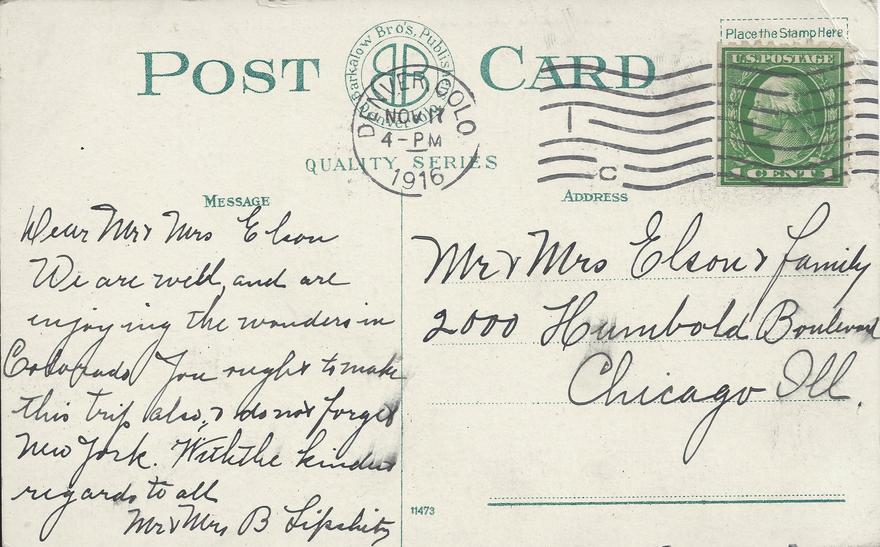 Place the Stamp Here
POST CARD
Barkalow Bro's. Publishers
Denver, Colo.
DENVER, COLO
NOV 17
4-PM
1916
U.S. POSTAGE
1 CENT 1
C
QUALITY SERIES
MESSAGE
Dear Mr & Mrs Elson
We are well, and are
enjoying the wonders in
Colorado. You ought to make
this trip also, & do not forget
New York. With the kindest
regards to all
Mr & Mrs B Lipshitz
ADDRESS
Mr & Mrs Elson & family
2000 Humbold Boulevard
Chicago Ill.
11473